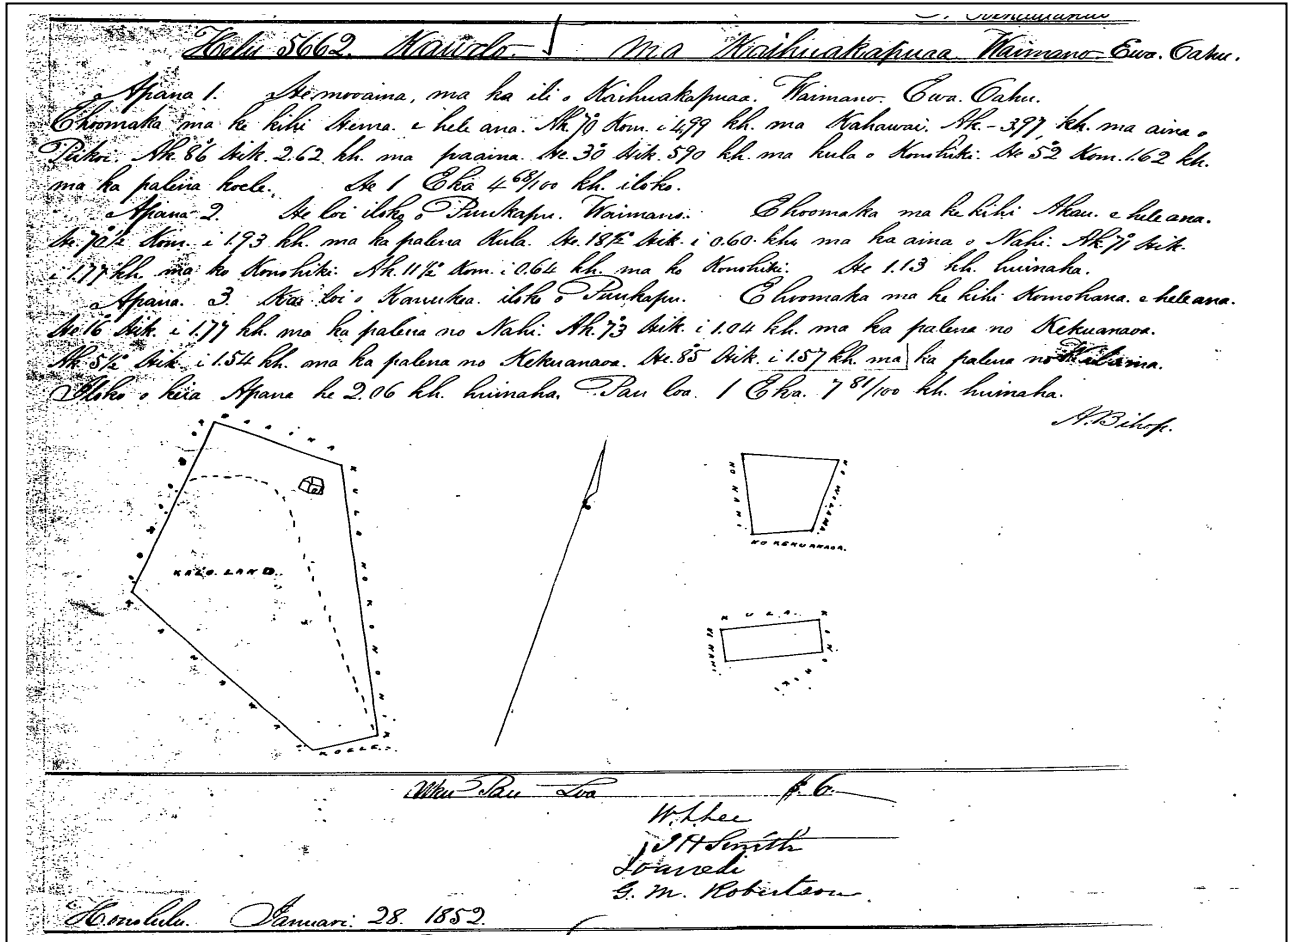 Helu 5662. Kauolo ma Kaihuakapuaa. Waimano. Ewa. Oahu.
Apana 1. He mooaina, ma ka ili o Kaihuakapuaa. Waimano. Ewa. Oahu.
Ehoomaka ma ke kihi Hema. e hele ana. Ak. 70° Kom. i 4.99 kh. ma Kahawai. Ak. - 3.97, kh. ma aina o
Piikoi. Ak. 86° Hik. 2.62 kh. ma paaina. He. 30° Hik. 5.90 kh. ma kula o Konohiki. He 52° Kom. 1.62 kh.
ma ka palena koele. He 1 Eka 4 68/100 kh. iloko.
Apana 2. He loi iloko o Puukapu. Waimano. Ehoomaka ma ke kihi Akau. e hele ana.
He. 70½° Kom. i 1.93 kh. ma ka palena Kula. He. 18½° Hik. i 0.60. kh. ma ka aina o Nahi. Ak. 71° Hik.
i 1.77 kh. ma ko Konohiki. Ak. 11½° Kom. i 0.64 kh. ma ko Konohiki. He 1.13 kh. huinaha.
Apana. 3. Kai loi o Kawukea. iloko o Puukapu. Ehoomaka ma ke kihi Komohana. e hele ana.
He 16° Hik. i 1.77 kh. ma ka palena no Nahi. Ak. 73° Hik. i 1.04 kh. ma ka palena no Kekuanaoa.
Ak. 5½° Hik. i 1.54 kh. ma ka palena no Kekuanaoa. He. 85° Hik. i 1.57 kh. ma ka palena no Wilama.
Iloko o keia Apana he 2.06 kh. huinaha. Pau loa. 1 Eka. 7 81/100 kh. huinaha.
A. Bihop.
PAAINA
KULA NO KONOHIKI
KALO LAND.
KAHAWAI
KOELE.
NO NAHI
NO WILAMA
NO KEKUANAOA.
KULA.
NO NAHI
KONOHIKI
Uku Pau Loa $6.
W. L. Lee
J H Smith
Ioanedi
G. M. Robertson
Honolulu. Januari. 28. 1852.